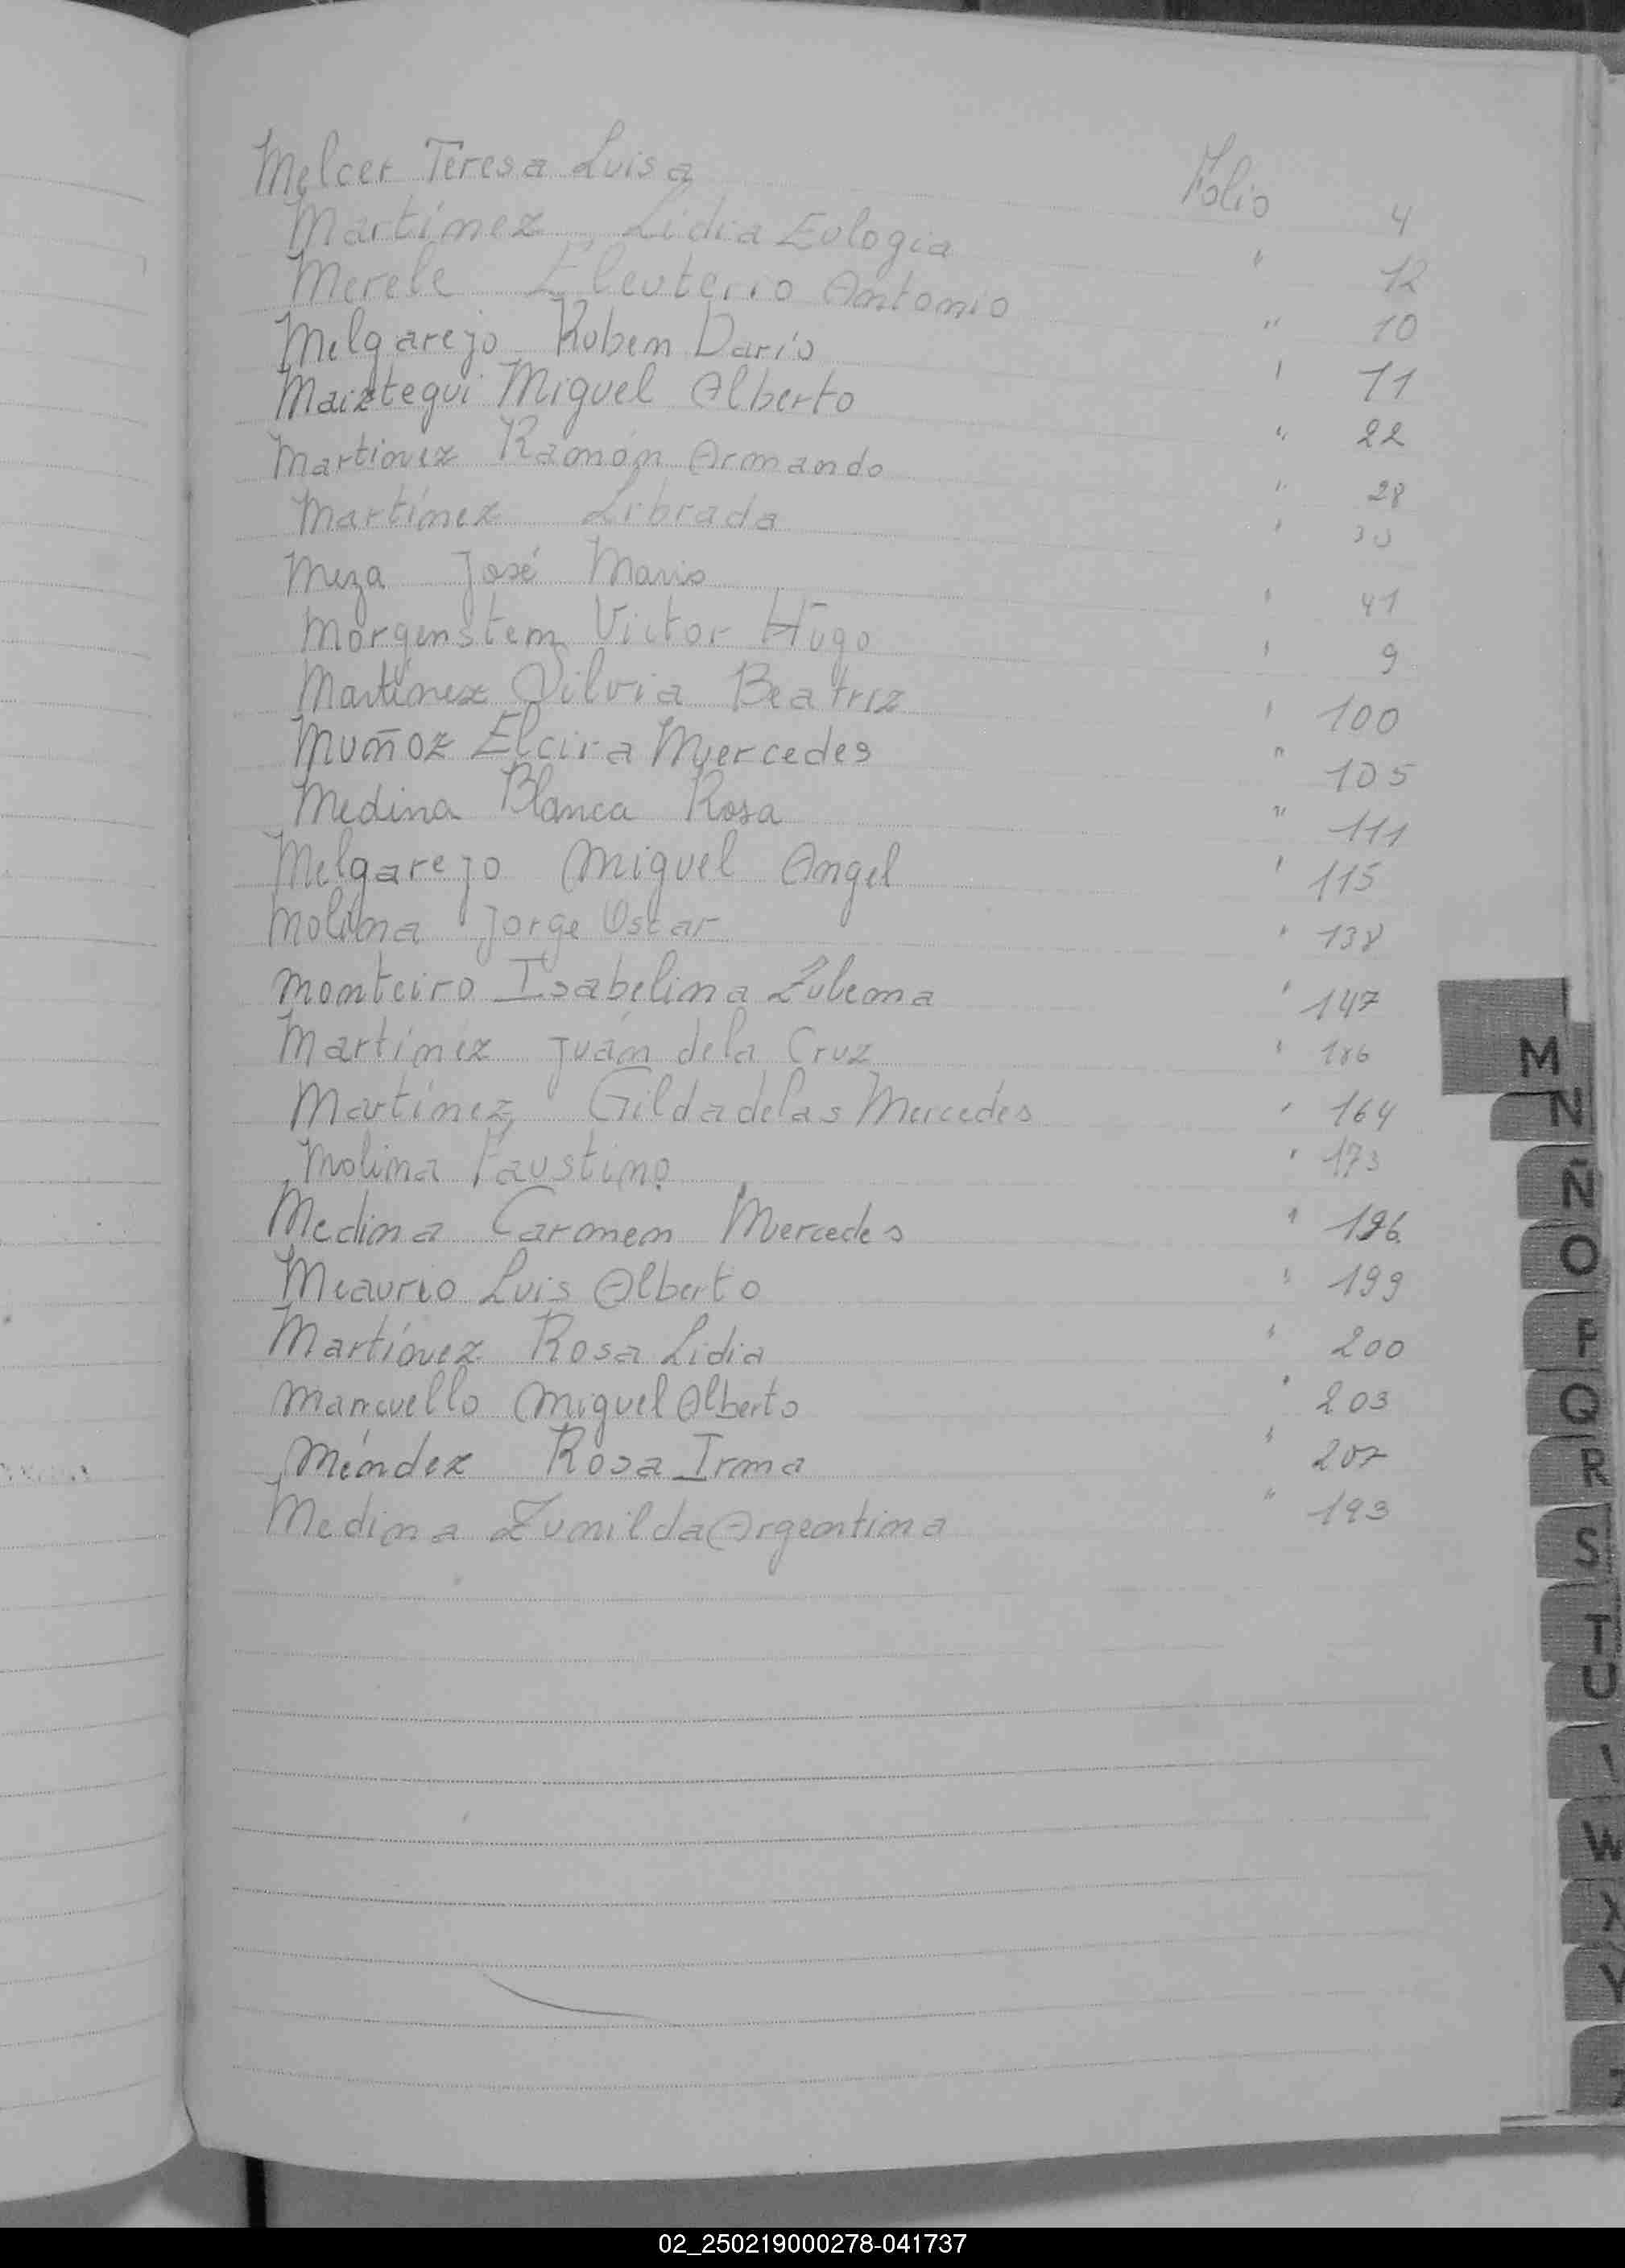 Melcer Teresa Luisa Folio 4
Martínez Lidia Eulogia " 12
Merele Eleuterio Antonio " 10
Melgarejo Ruben Darío " 11
Maiztegui Miguel Alberto " 22
Martinez Ramón Armando " 28
Martínez Librada " 30
Meza José Mario " 41
Morgenstern Victor Hugo " 9
Martínez Silvia Beatriz " 100
Muñoz Elcira Mercedes " 105
Medina Blanca Rosa " 111
Melgarejo Miguel Angel " 115
Molina Jorge Oscar " 138
Monteiro Isabelina Zulema " 147
Martínez Juán dela Cruz "
Martínez Gilda delas Mercedes " 164
Molina Faustino " 173
Medina Carmen Mercedes " 196
Meaurio Luis Alberto " 199
Martínez Rosa Lidia " 200
Mancuello Miguel Alberto " 203
Méndez Rosa Irma " 207
Medina Zunilda Argentina " 193
M
N
Ñ
O
P
Q
R
S
T
U
W
X
Y
02_250219000278-041737